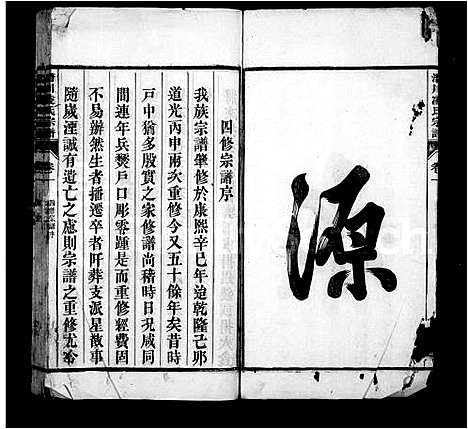 源
四修宗譜序
我族宗譜肇修於康熙辛巳年迨乾隆己卯
道光丙申兩次重修今又五十餘年矣昔時
戶中猶多殷實之家修譜尚稽時日况咸同
間連年兵燹戶口彫零踵是而重修經費固
不易辦然生者播遷卒者阡葬支派星散事
隨歲湮誠有遺亡之慮則宗譜之重修尤不
卷一
四修宗譜序